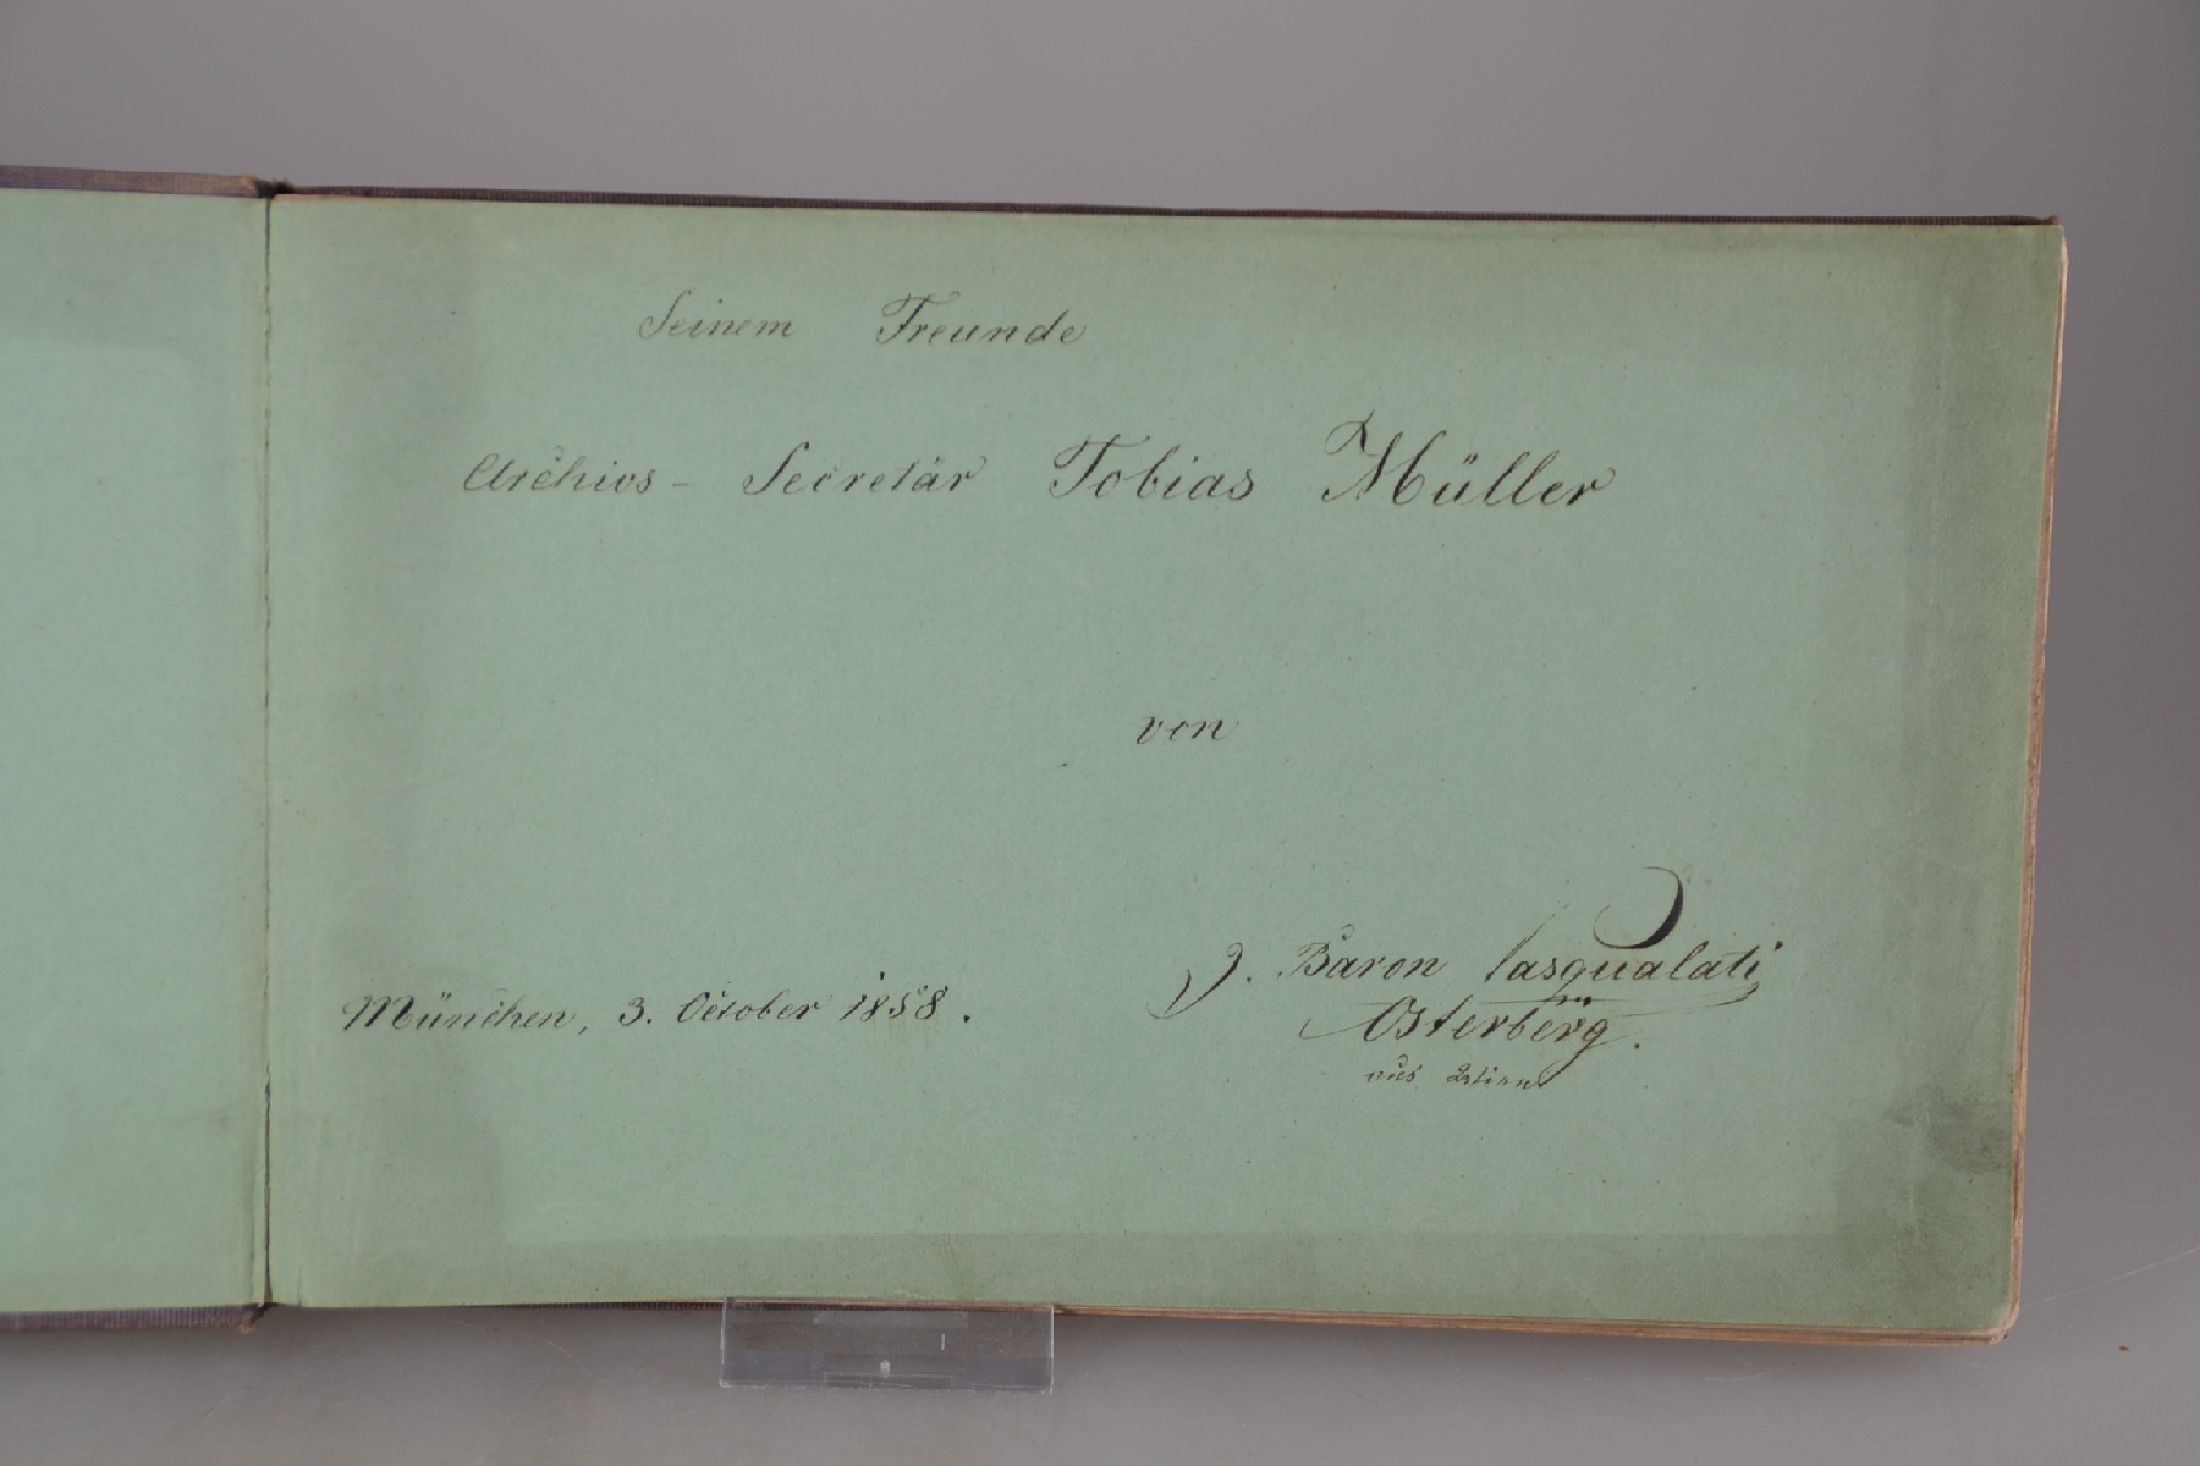 Seinem Freunde
Archivs - Secretär Tobias Müller
von
München, 3. October 1858.
J. Baron Pasqualati
Osterberg.
aus Wien